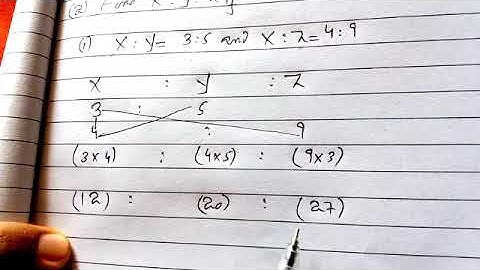 (2) Find x : y :
(i) x : y = 3:5 and x : z = 4 : 9
x : y : z
3 : 5
4 : 9
(3x4) : (4x5) : (9x3)
(12) : (20) : (27)